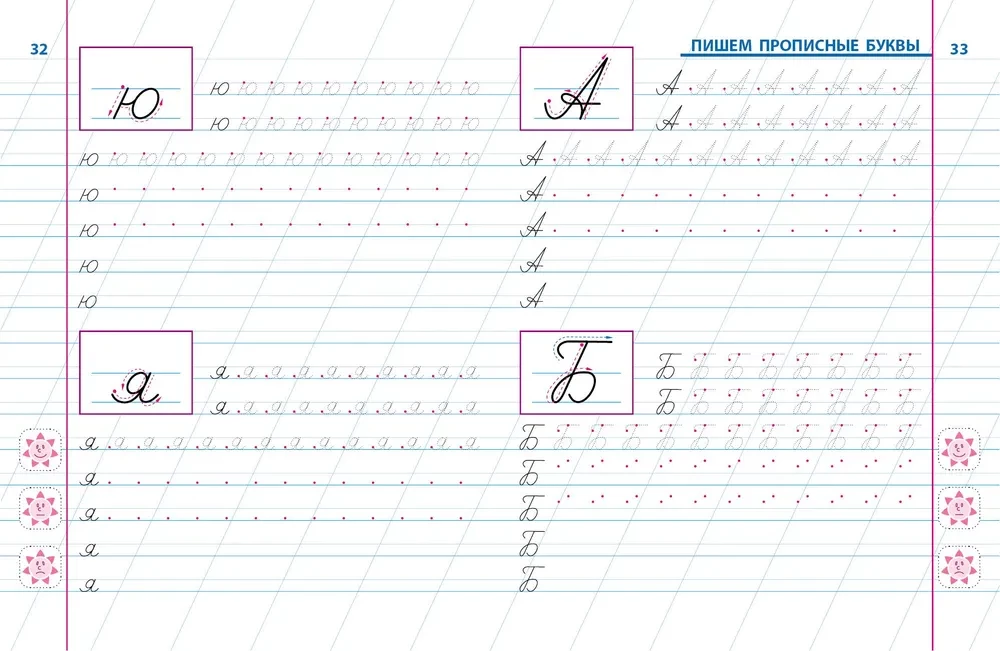 32
ю
ю ю ю ю ю ю ю ю ю ю
ю ю ю ю ю ю ю ю ю ю
ю ю ю ю ю ю ю ю ю ю ю ю ю ю
ю
ю
ю
ю
я
я я я я я я я я я я
я я я я я я я я я я
я я я я я я я я я я я я я я
я
я
я
я
ПИШЕМ ПРОПИСНЫЕ БУКВЫ 33
А
А А А А А А А А
А А А А А А А А
А А А А А А А А А А А А
А
А
А
А
Б
Б Б Б Б Б Б Б Б
Б Б Б Б Б Б Б Б
Б Б Б Б Б Б Б Б Б Б Б Б
Б
Б
Б
Б